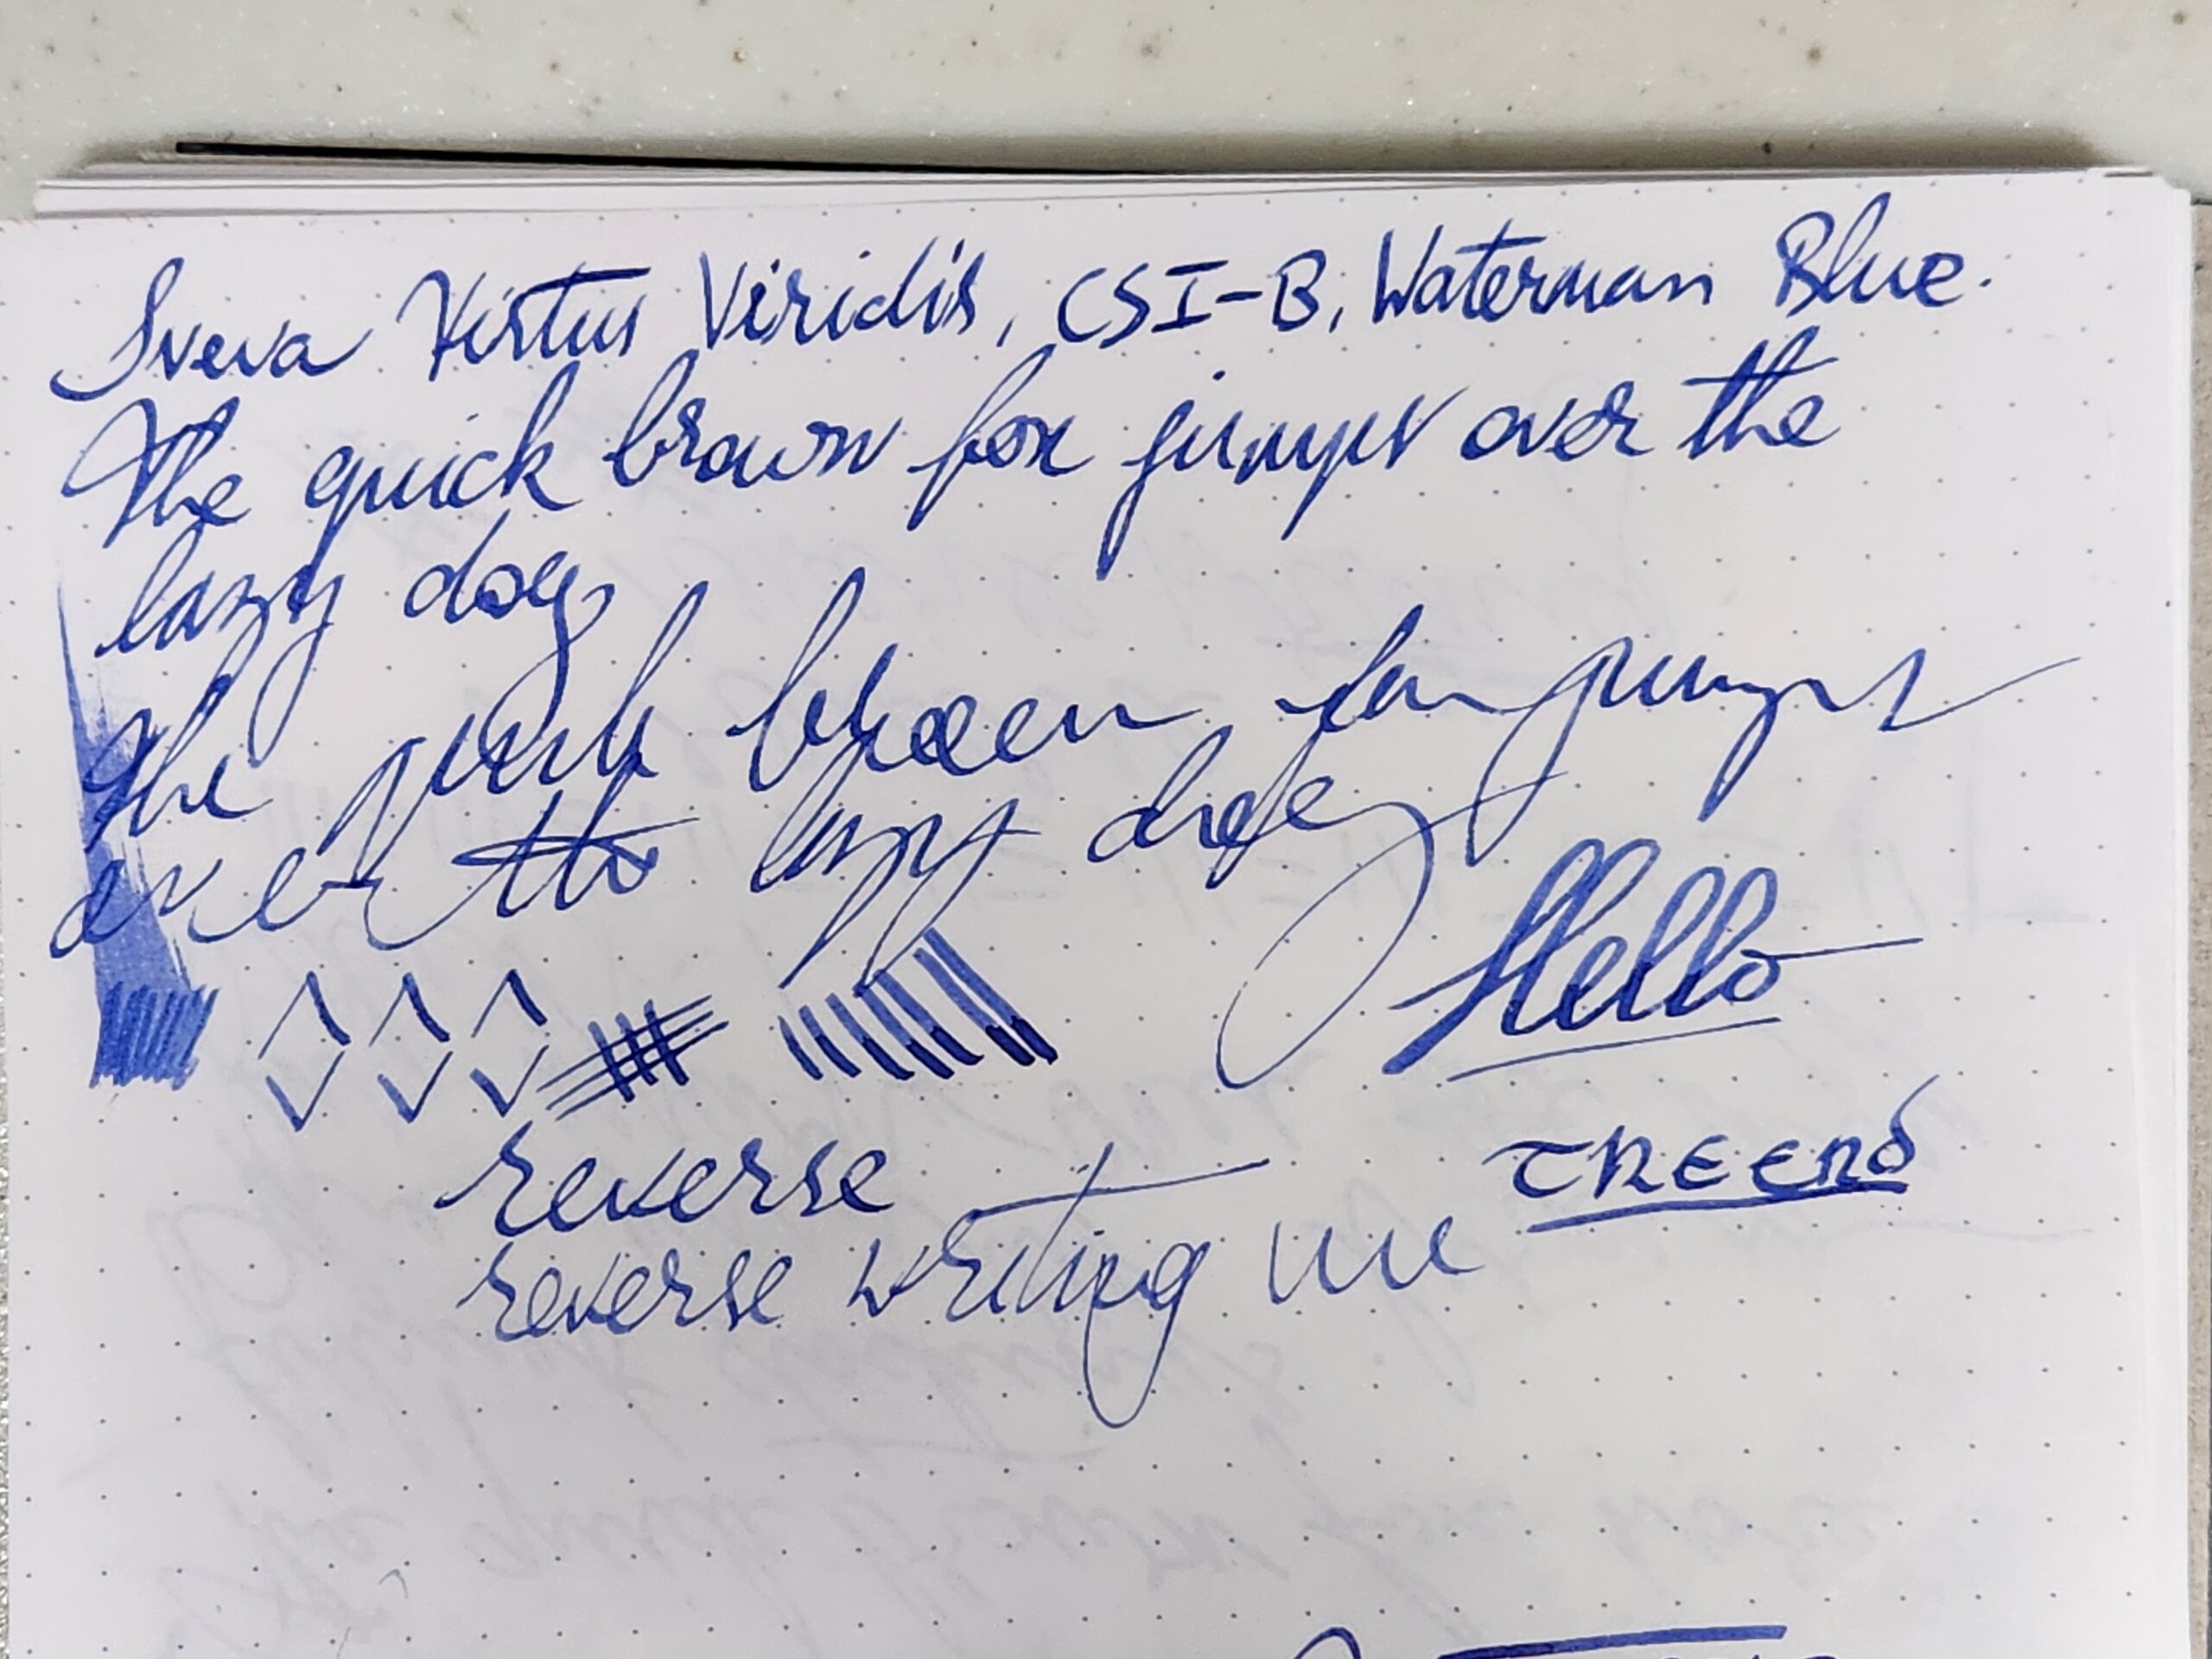 Sveva Virtus Viridis, CSI-B, Waterman Blue.
The quick brown fox jumps over the
lazy dog
The quick brown fox jumps
over the lazy dog
Hello
reverse
THE END
reverse writing